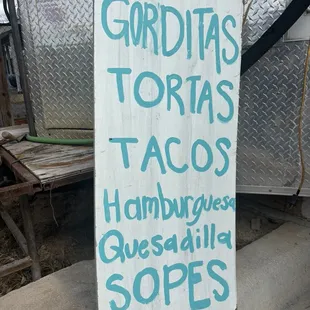 GORDITAS
TORTAS
TACOS
Hamburguesa
Quesadilla
SOPES